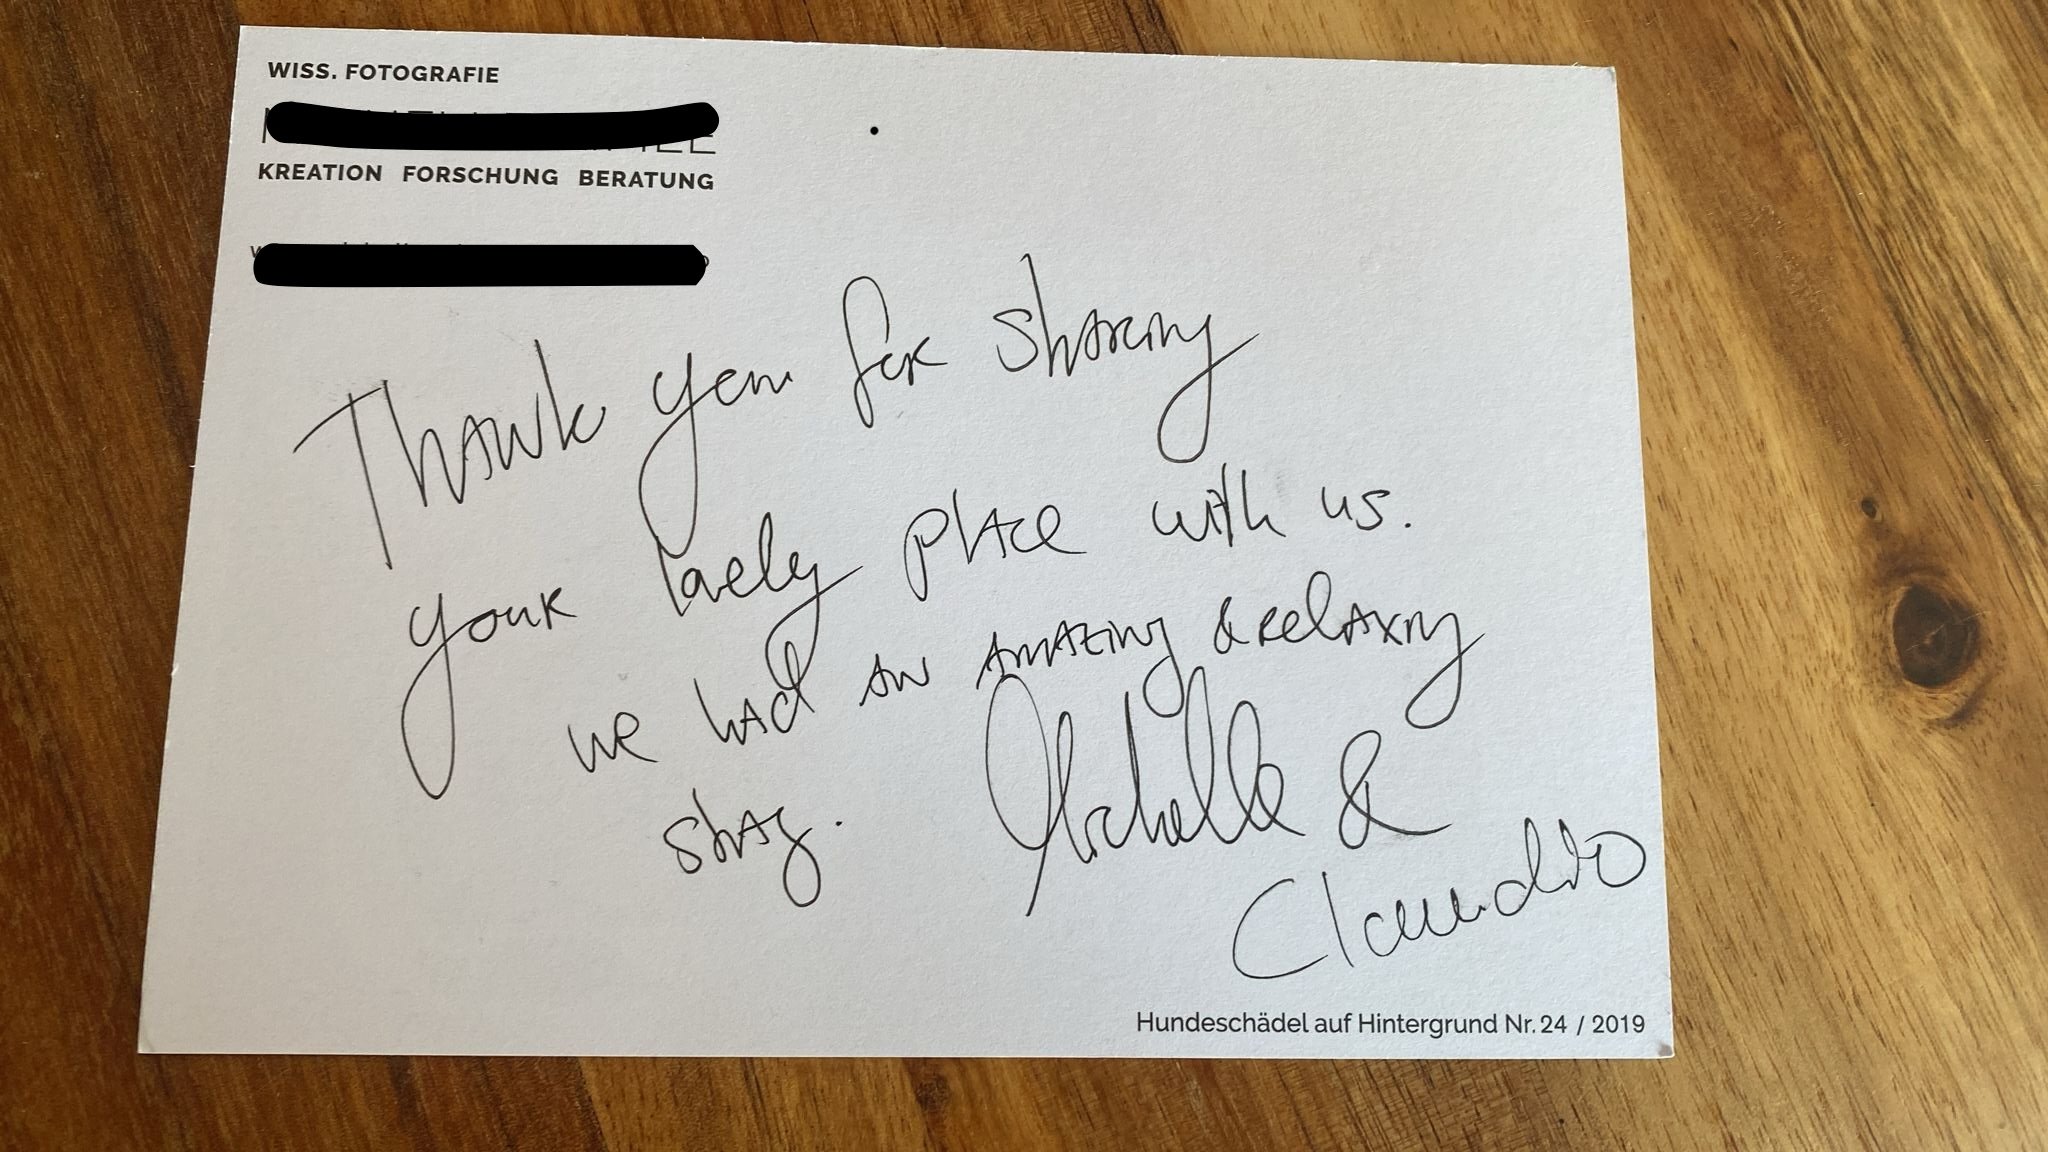 WISS. FOTOGRAFIE
KREATION FORSCHUNG BERATUNG
Thank you for sharing
your lovely place with us.
we had an amazing & relaxing
stay. Michelle &
Claudio
Hundeschädel auf Hintergrund Nr. 24 / 2019